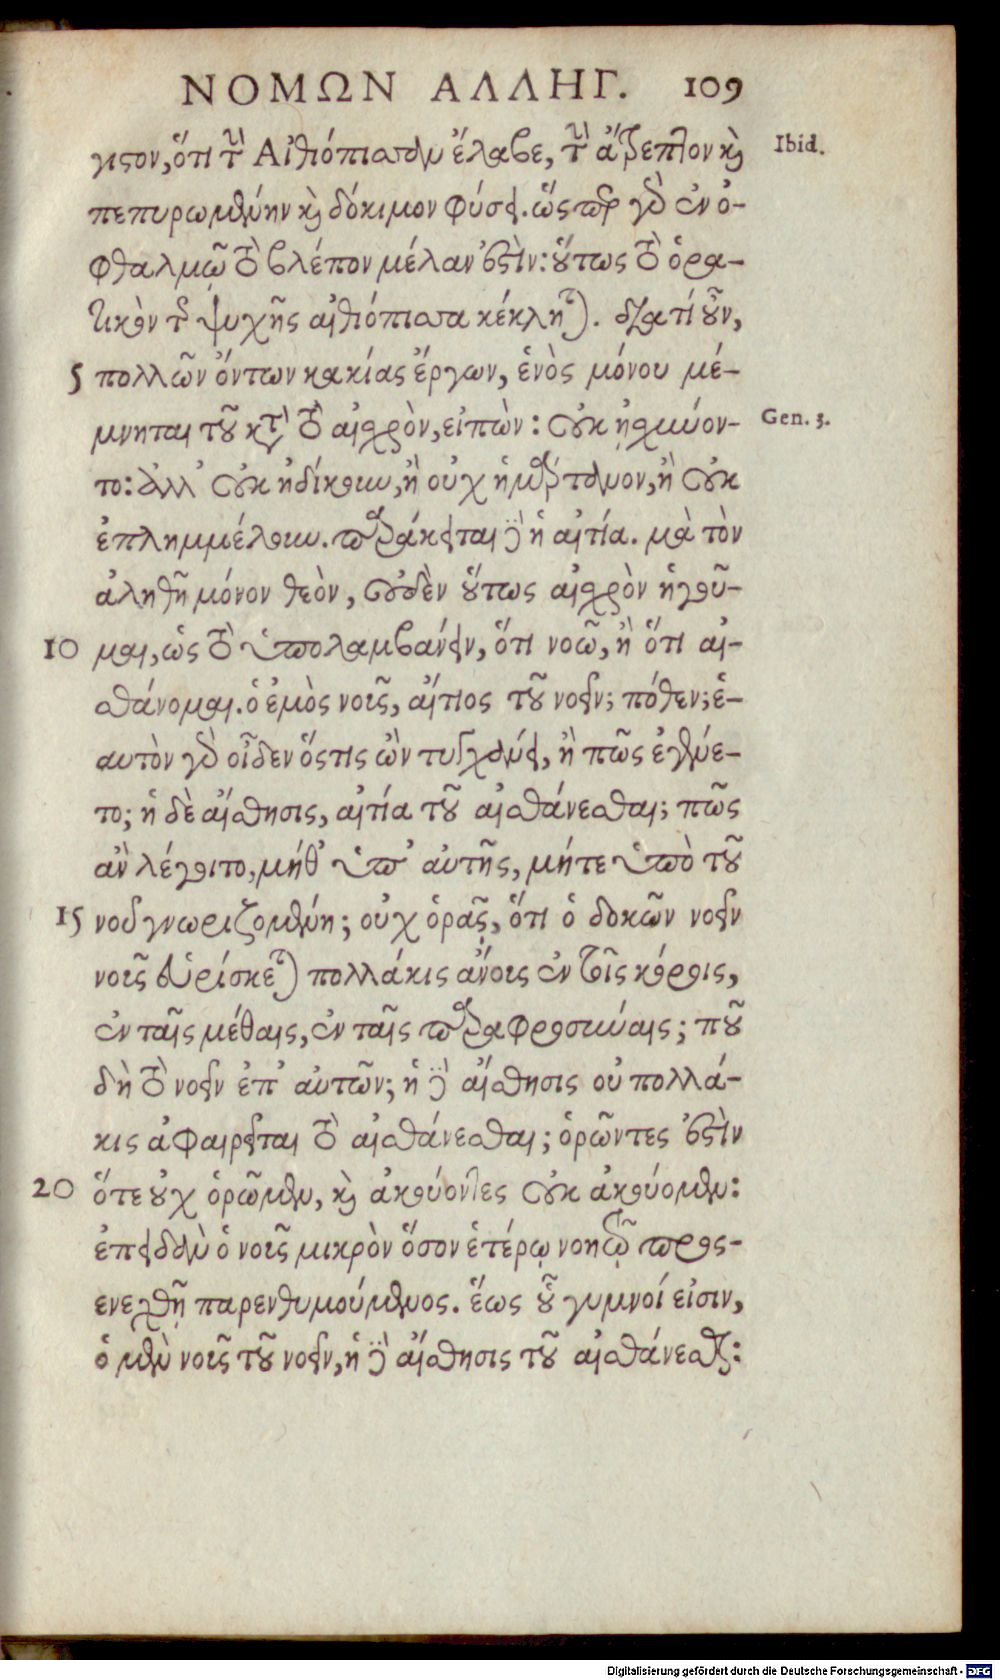 ΝΟΜΩΝ ΑΛΛΗΓ. 109
γιστον, ὅτι τὴν Αἰθιόπισσαν ἔλαβε, τὴν ἄτρεπτον καὶ Ibid.
πεπυρωμένην καὶ δόκιμον φύσιν. ὥσπερ γὰρ ἐν ὀ-
φθαλμῷ τὸ βλέπον μέλαν ἐστὶν: οὕτως τὸ ὁρα-
τικὸν τῆς ψυχῆς αἰθιόπισσα κέκληται. διατί οὖν,
5 πολλῶν ὄντων κακίας ἔργων, ἑνὸς μόνου μέ-
μνηται τοῦ κατὰ τὸ αἰσχρὸν, εἰπὼν: οὐκ ᾐσχύνον- Gen. 3.
το: ἀλλ' οὐκ ἠδίκουν, ἢ οὐχ ἡμάρτανον, ἢ οὐκ
ἐπλημμέλουν. παράκειται δὲ ἡ αἰτία. μὰ τὸν
ἀληθῆ μόνον θεὸν, οὐδὲν οὕτως αἰσχρὸν ἡγοῦ-
10 μαι, ὡς τὸ ὑπολαμβάνειν, ὅτι νοῶ, ἢ ὅτι αἰ-
σθάνομαι. ὁ ἐμὸς νοῦς, αἴτιος τοῦ νοεῖν; πόθεν; ἑ-
αυτὸν γὰρ οἶδεν ὅστις ὢν τυγχάνει, ἢ πῶς ἐγένε-
το; ἡ δὲ αἴσθησις, αἰτία τοῦ αἰσθάνεσθαι; πῶς
ἂν λέγοιτο, μήθ' ὑπ' αὐτῆς, μήτε ὑπὸ τοῦ
15 νοῦ γνωριζομένη; οὐχ ὁρᾷς, ὅτι ὁ δοκῶν νοεῖν
νοῦς εὑρίσκεται πολλάκις ἄνους ἐν τοῖς κόροις,
ἐν ταῖς μέθαις, ἐν ταῖς παραφροσύναις; ποῦ
δὴ τὸ νοεῖν ἐπ' αὐτῶν; ἡ δὲ αἴσθησις οὐ πολλά-
κις ἀφαιρεῖται τὸ αἰσθάνεσθαι; ὁρῶντες ἐστὶν
20 ὅτε οὐχ ὁρῶμεν, καὶ ἀκούοντες οὐκ ἀκούομεν:
ἐπειδὰν ὁ νοῦς μικρὸν ὅσον ἑτέρῳ νοητῷ προσ-
ενεχθῇ παρενθυμούμενος. ἕως οὖν γυμνοί εἰσιν,
ὁ μὲν νοῦς τοῦ νοεῖν, ἡ δὲ αἴσθησις τοῦ αἰσθάνεσθαι:
Digitalisierung gefördert durch die Deutsche Forschungsgemeinschaft - DFG